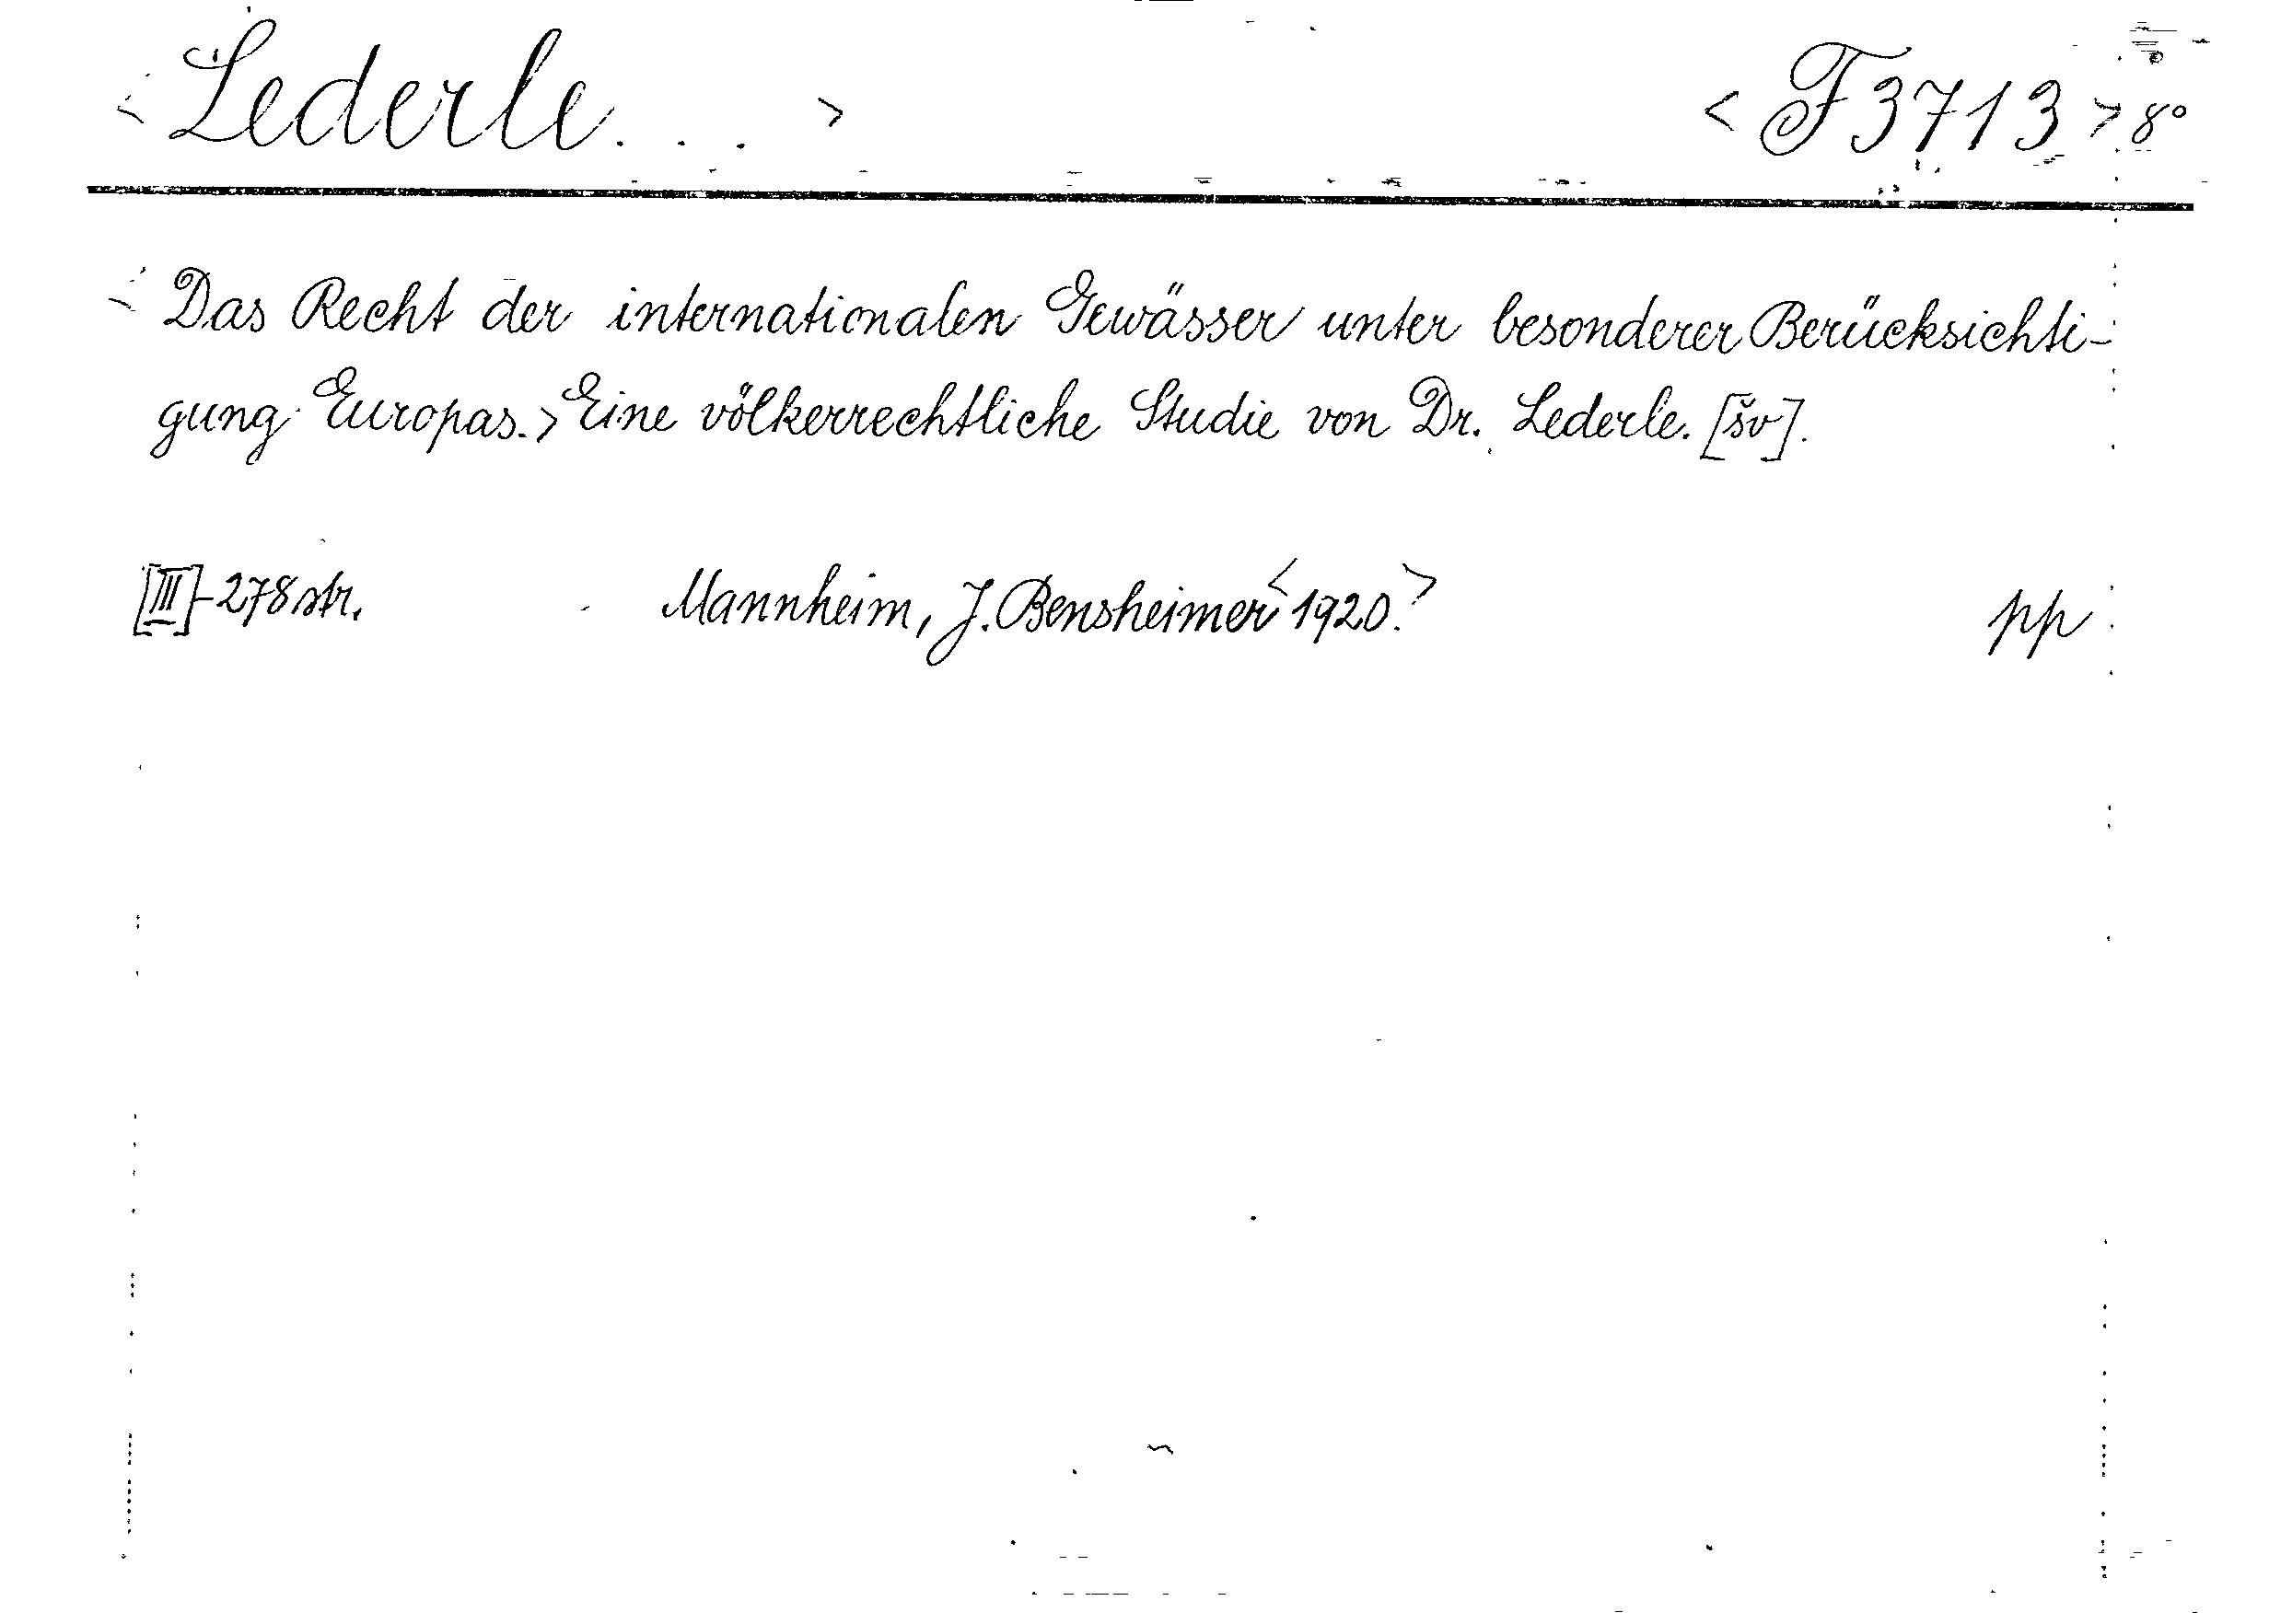 <Lederle...> <F3713> 8°
<Das Recht der internationalen Gewässer unter besonderer Berücksichti-
gung Europas.> Eine völkerrechtliche Studie von Dr. Lederle. [šv].
[III]-278 str. Mannheim, J. Bensheimer <1920.> pp